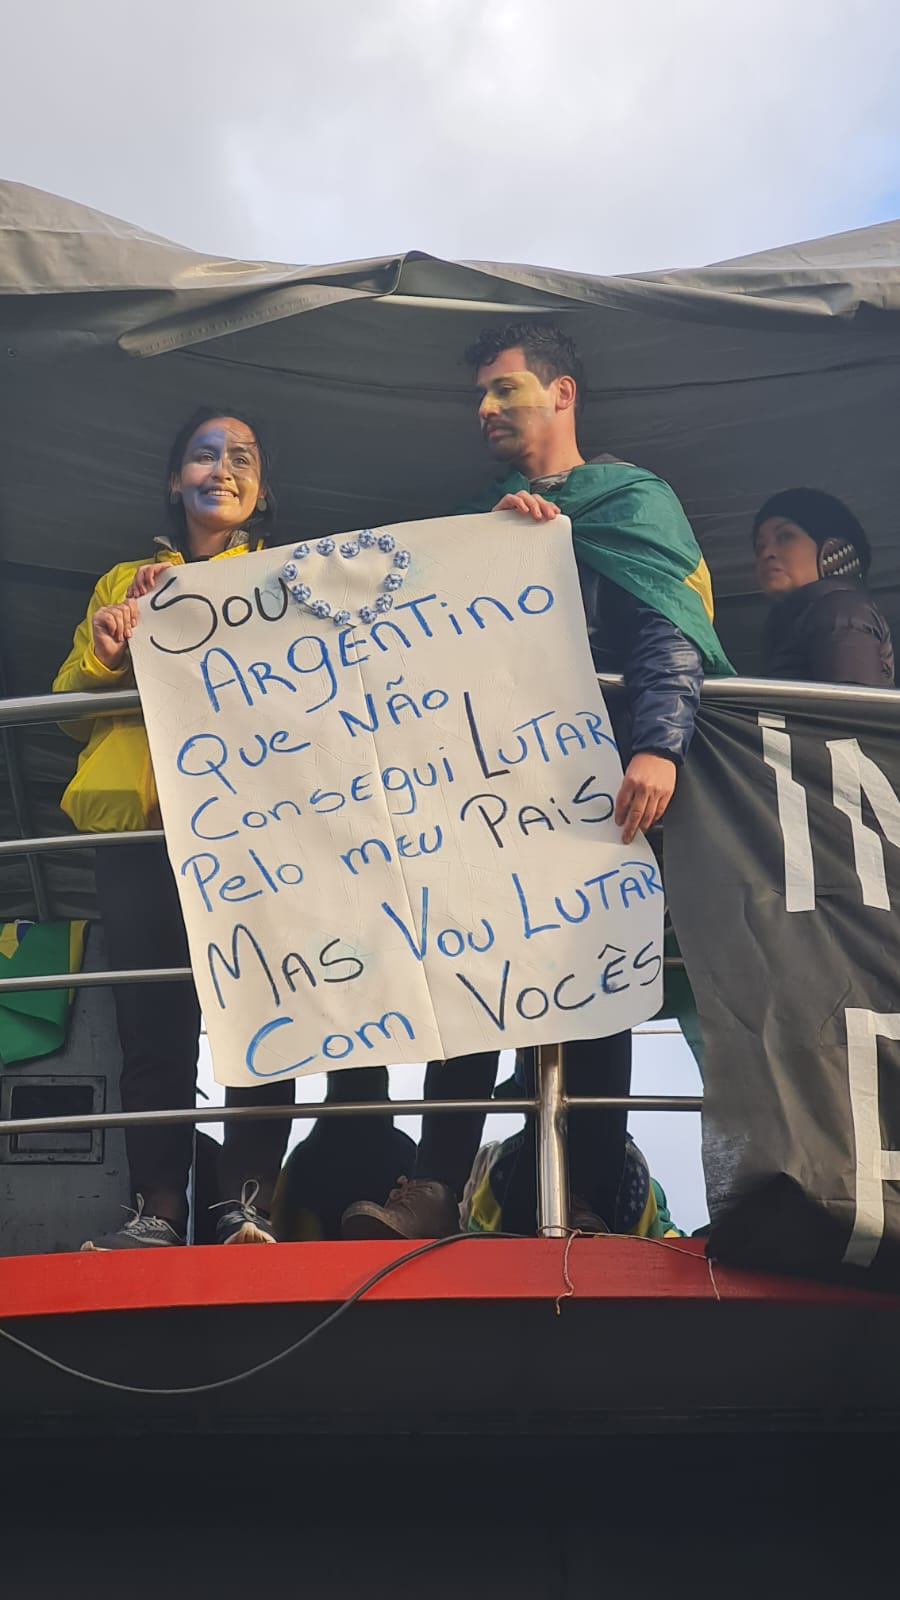 SOU
ARgENTiNO
QUe NÃO
Consegui LUTAR
Pelo meu PAiS
MAS VOU LUTAR
Com VOCÊS